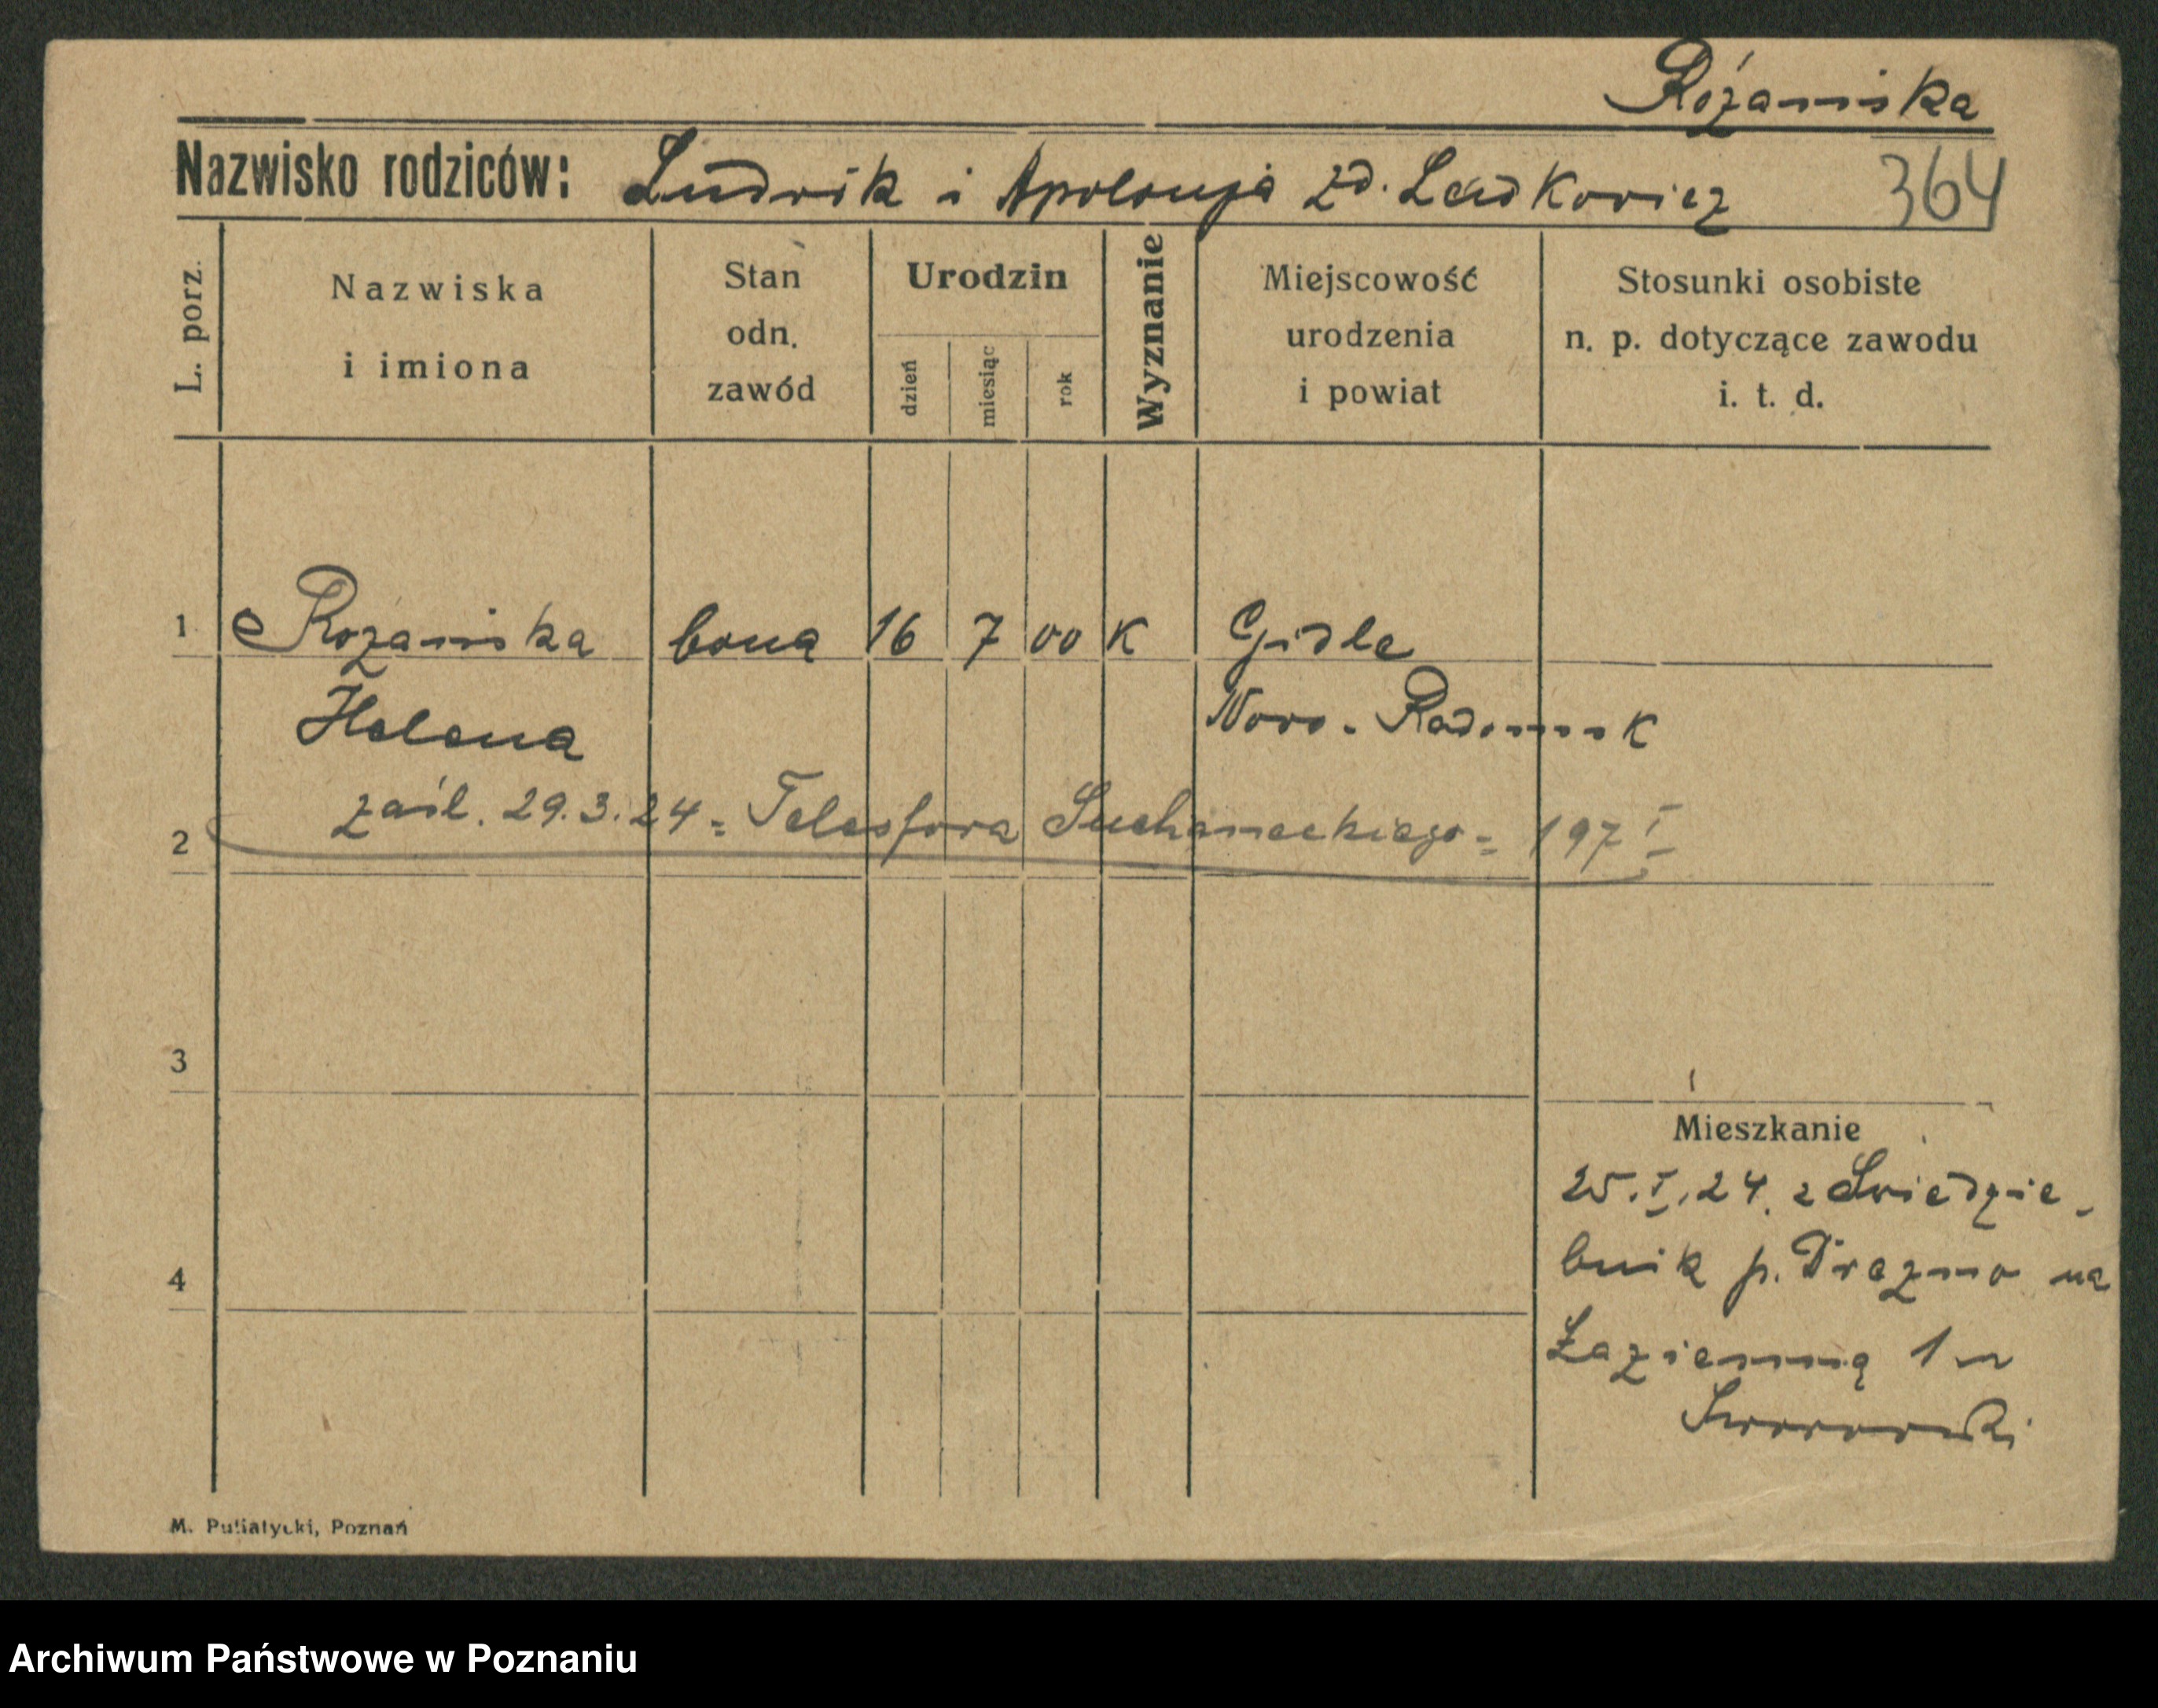 Różańska
Nazwisko rodziców: Ludwik i Apolonja zd. Ladkowicz 364
L. porz.
Nazwiska i imiona
Stan odn. zawód
Urodzin
dzień miesiąc rok
Wyznanie
Miejscowość urodzenia i powiat
Stosunki osobiste n. p. dotyczące zawodu i. t. d.
1 Rozańska bona 16 7 00 K Gidle
Helena Nowo-Radomsk
zaśl. 29.3.24 = Telesfora Suchaneckiego = 197 I
2
3
Mieszkanie
25.I.24. z Swiedzie-
4 bnik p. na
Łazienną 1 u
M. Putiatycki, Poznań
Archiwum Państwowe w Poznaniu